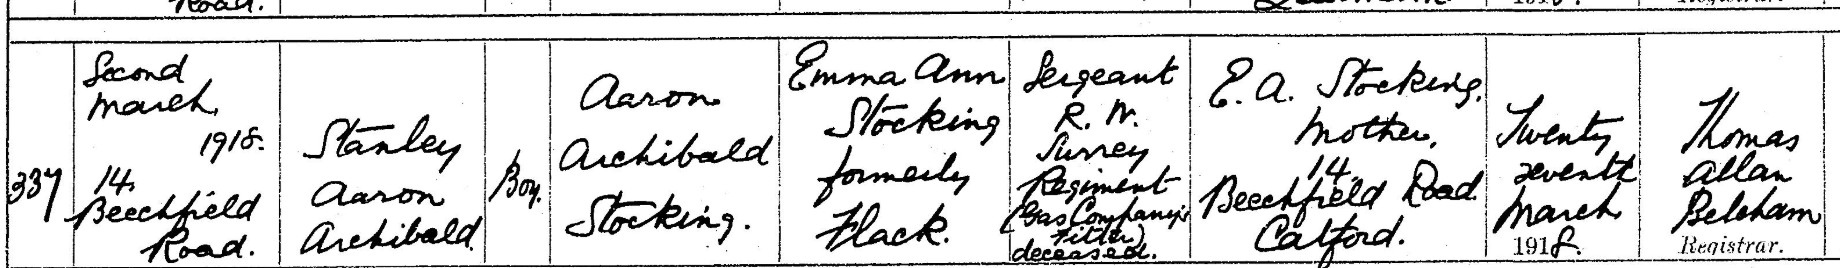 Road.
1918.
Registrar.
337
Second
March
1918.
14.
Beechfield
Road.
Stanley
Aaron
Archibald
Boy.
Aaron
Archibald
Stocking.
Emma Ann
Stocking
formerly
Flack.
Sergeant
R. W.
Surrey
Regiment
(Gas Company's
Fitter)
deceased.
E. A. Stocking.
Mother.
14.
Beechfield Road
Catford.
Twenty
seventh
March
1918.
Thomas
Allan
Belcham
Registrar.